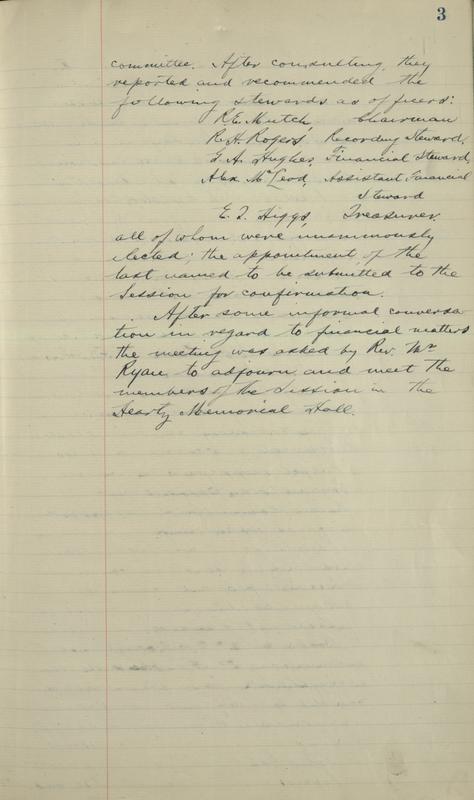 3
committee. After consulting, they
reported and recommended the
following stewards as officers:
R.E. Mutch, Chairman
R.H. Rogers, Recording Steward,
A. Hughes, Financial Steward,
Alex. McLeod, Assistant Financial
Steward
E. T. Higgs, Treasurer,
all of whom were unanimously
elected; the appointment of the
last named to be submitted to the
Session for confirmation.
After some informal conversa
tion in regard to financial matters
the meeting was asked by Rev. Mr
Ryan to adjourn and meet the
members of the Session in the
Heartz Memorial Hall.